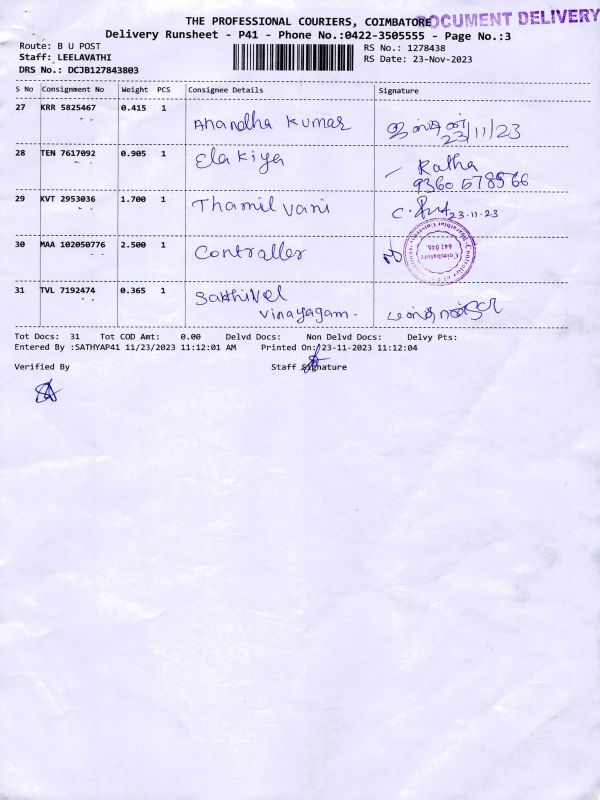 THE PROFESSIONAL COURIERS, COIMBATORE
DOCUMENT DELIVERY
Delivery Runsheet - P41 - Phone No.:0422-3505555 - Page No.:3
Route: B U POST
RS No.: 1278438
Staff: LEELAVATHI
RS Date: 23-Nov-2023
DRS No.: DCJB127843803
S No Consignment No Weight PCS Consignee Details Signature
27 KRR 5825467 0.415 1 Anandha Kumar
23/11/23
28 TEN 7617092 0.905 1 Elakiya Ratha
9360578566
29 KVT 2953036 1.700 1 Thamil vani C. 23.11.23
30 MAA 102050776 2.500 1 Contraller
Coimbatore
641 046.
31 TVL 7192474 0.365 1 Sakthivel
vinayagam.
Tot Docs: 31 Tot COD Amt: 0.00 Delvd Docs: Non Delvd Docs: Delvy Pts:
Entered By :SATHYAP41 11/23/2023 11:12:01 AM Printed On: 23-11-2023 11:12:04
Verified By Staff Signature